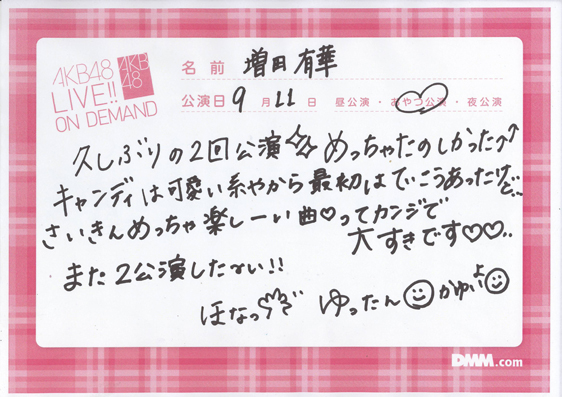 AKB48
LIVE!!
ON DEMAND
AKB
48
名前 増田有華
公演日 9月11日 昼公演・おやつ公演・夜公演
久しぶりの2回公演☆ めっちゃたのしかった↑↑
キャンディは可愛い系やから最初はていこうあったけど、、
さいきんめっちゃ楽しーい曲♡ってカンジで
大すきです♡♡..
また2公演したーい!!
ほなっ
ゆったん
かゆいよ
DMM.com